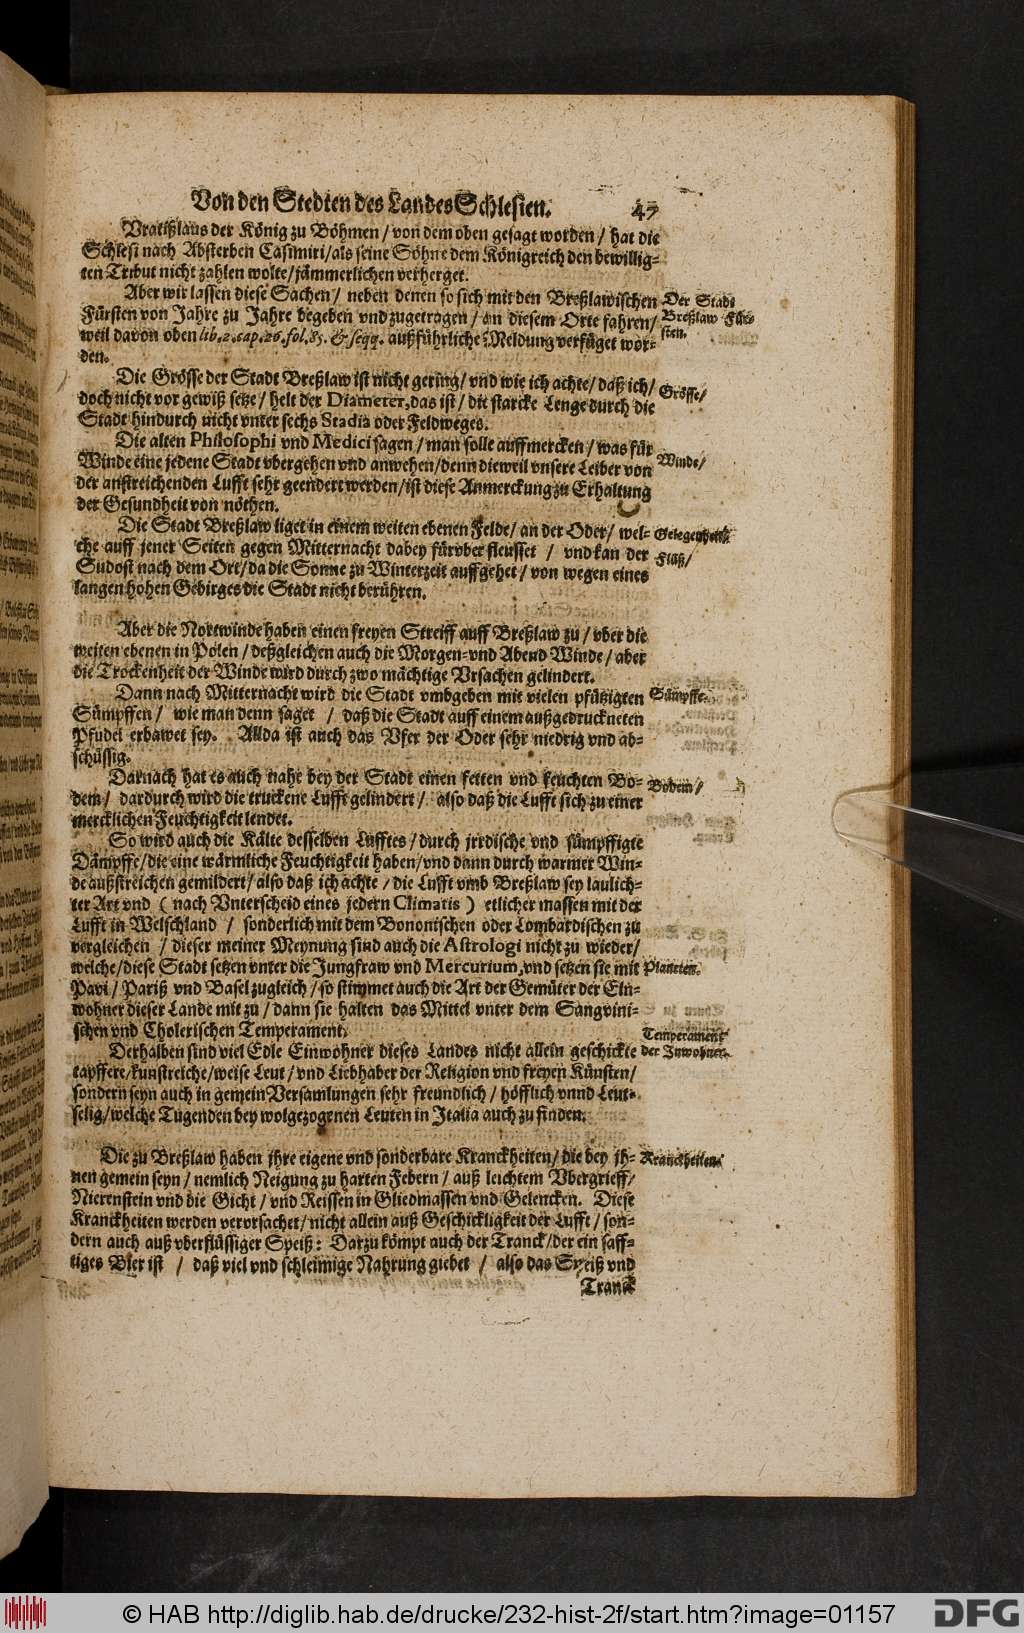 Von den Stedten des Landes Schlesien. 47
Vratißlaus der König zu Böhmen / von dem oben gesagt worden / hat die
Schlesi nach Absterben Casimiri / als seine Söhne dem Königreich den bewillig-
ten Tribut nicht zahlen wolte / jämmerlichen verherget.
Aber wir lassen diese Sachen / neben denen so sich mit den Breßlawischen
Fürsten von Jahre zu Jahre begeben vnd zugetragen / an diesem Orte fahren /
weil davon oben lib. 2. cap. 26. fol. 85. & seqq. außführliche Meldung verfüget wor-
den.
Der Stadt
Breßlaw Für-
sten.
Die Grösse der Stadt Breßlaw ist nicht gering / vnd wie ich achte / daß ich /
doch nicht vor gewiß setze / helt der Diameter, das ist / die starcke Lenge durch die
Stadt hindurch nicht vnter sechs Stadia oder Feldweges.
Grösse /
Die alten Philosophi vnd Medici sagen / man solle auffmercken / was für
Winde eine jedene Stadt vbergehen vnd anwehen / denn dieweil vnsere Leiber von
der anstreichenden Lufft sehr geendert werden / ist diese Anmerckung zu Erhaltung
der Gesundheit von nöthen.
Winde /
Die Stadt Breßlaw liget in einem weiten ebenen Felde / an der Oder / wel-
che auff jener Seiten gegen Mitternacht dabey fürvber fleusset / vnd kan der
Sudost nach dem Ort / da die Sonne zu Winterzeit auffgehet / von wegen eines
langen hohen Gebirges die Stadt nicht berühren.
Gelegenheit /
Fluß /
Aber die Nortwinde haben einen freyen Streiff auff Breßlaw zu / vber die
weiten ebenen in Polen / deßgleichen auch die Morgen- vnd Abend Winde / aber
die Trockenheit der Winde wird durch zwo mächtige Vrsachen gelindert.
Dann nach Mitternacht wird die Stadt vmbgeben mit vielen pfützigten
Sümpffen / wie man denn saget / daß die Stadt auff einem außgedruckneten
Pfudel erbawet sey. Allda ist auch das Vfer der Oder sehr niedrig vnd ab-
schüssig.
Sümpffe.
Darnach hat es auch nahe bey der Stadt einen fetten vnd feuchten Bo-
dem / dardurch wird die truckene Lufft gelindert / also daß die Lufft sich zu einer
mercklichen Feuchtigkeit lendet.
Bodem /
So wird auch die Kälte desselben Lufftes / durch jrrdische vnd sümpffigte
Dämpffe / die eine wärmliche Feuchtigkeit haben / vnd dann durch warmer Win-
de außstreichen gemildert / also daß ich achte / die Lufft vmb Breßlaw sey laulich-
ter Art vnd ( nach Vnterscheid eines jedern Climatis ) etlicher massen mit der
Lufft in Welschland / sonderlich mit dem Bononischen oder Lombardischen zu
vergleichen / dieser meiner Meynung sind auch die Astrologi nicht zu wieder /
welche / diese Stadt setzen vnter die Jungfraw vnd Mercurium, vnd setzen sie mit
Pavi / Pariß vnd Basel zugleich / so stimmet auch die Art der Gemüter der Ein-
wohner dieser Lande mit zu / dann sie halten das Mittel vnter dem Sangvini-
schen vnd Cholerischen Temperament.
Planeten.
Derhalben sind viel Edle Einwohner dieses Landes nicht allein geschickte
tapffere / kunstreiche / weise Leut / vnd Liebhaber der Religion vnd freyen Künsten /
sondern seyn auch in gemein Versamlungen sehr freundlich / höfflich vnnd Leut-
selig / welche Tugenden bey wolgezogenen Leuten in Italia auch zu finden.
Temperament
der Inwohner.
Die zu Breßlaw haben jhre eigene vnd sonderbare Kranckheiten / die bey jh-
nen gemein seyn / nemlich Neigung zu harten Febern / auß leichtem Vbergrieff /
Nierenstein vnd die Gicht / vnd Reissen in Gliedmassen vnd Gelencken. Diese
Kranckheiten werden vervrsachet / nicht allein auß Geschickligkeit der Lufft / son-
dern auch auß vberflüssiger Speiß : Darzu kömpt auch der Tranck / der ein saff-
tiges Bier ist / daß viel vnd schleimige Nahrung giebet / also das Speiß vnd
Kranckheiten
Tranck
© HAB http://diglib.hab.de/drucke/232-hist-2f/start.htm?image=01157
DFG